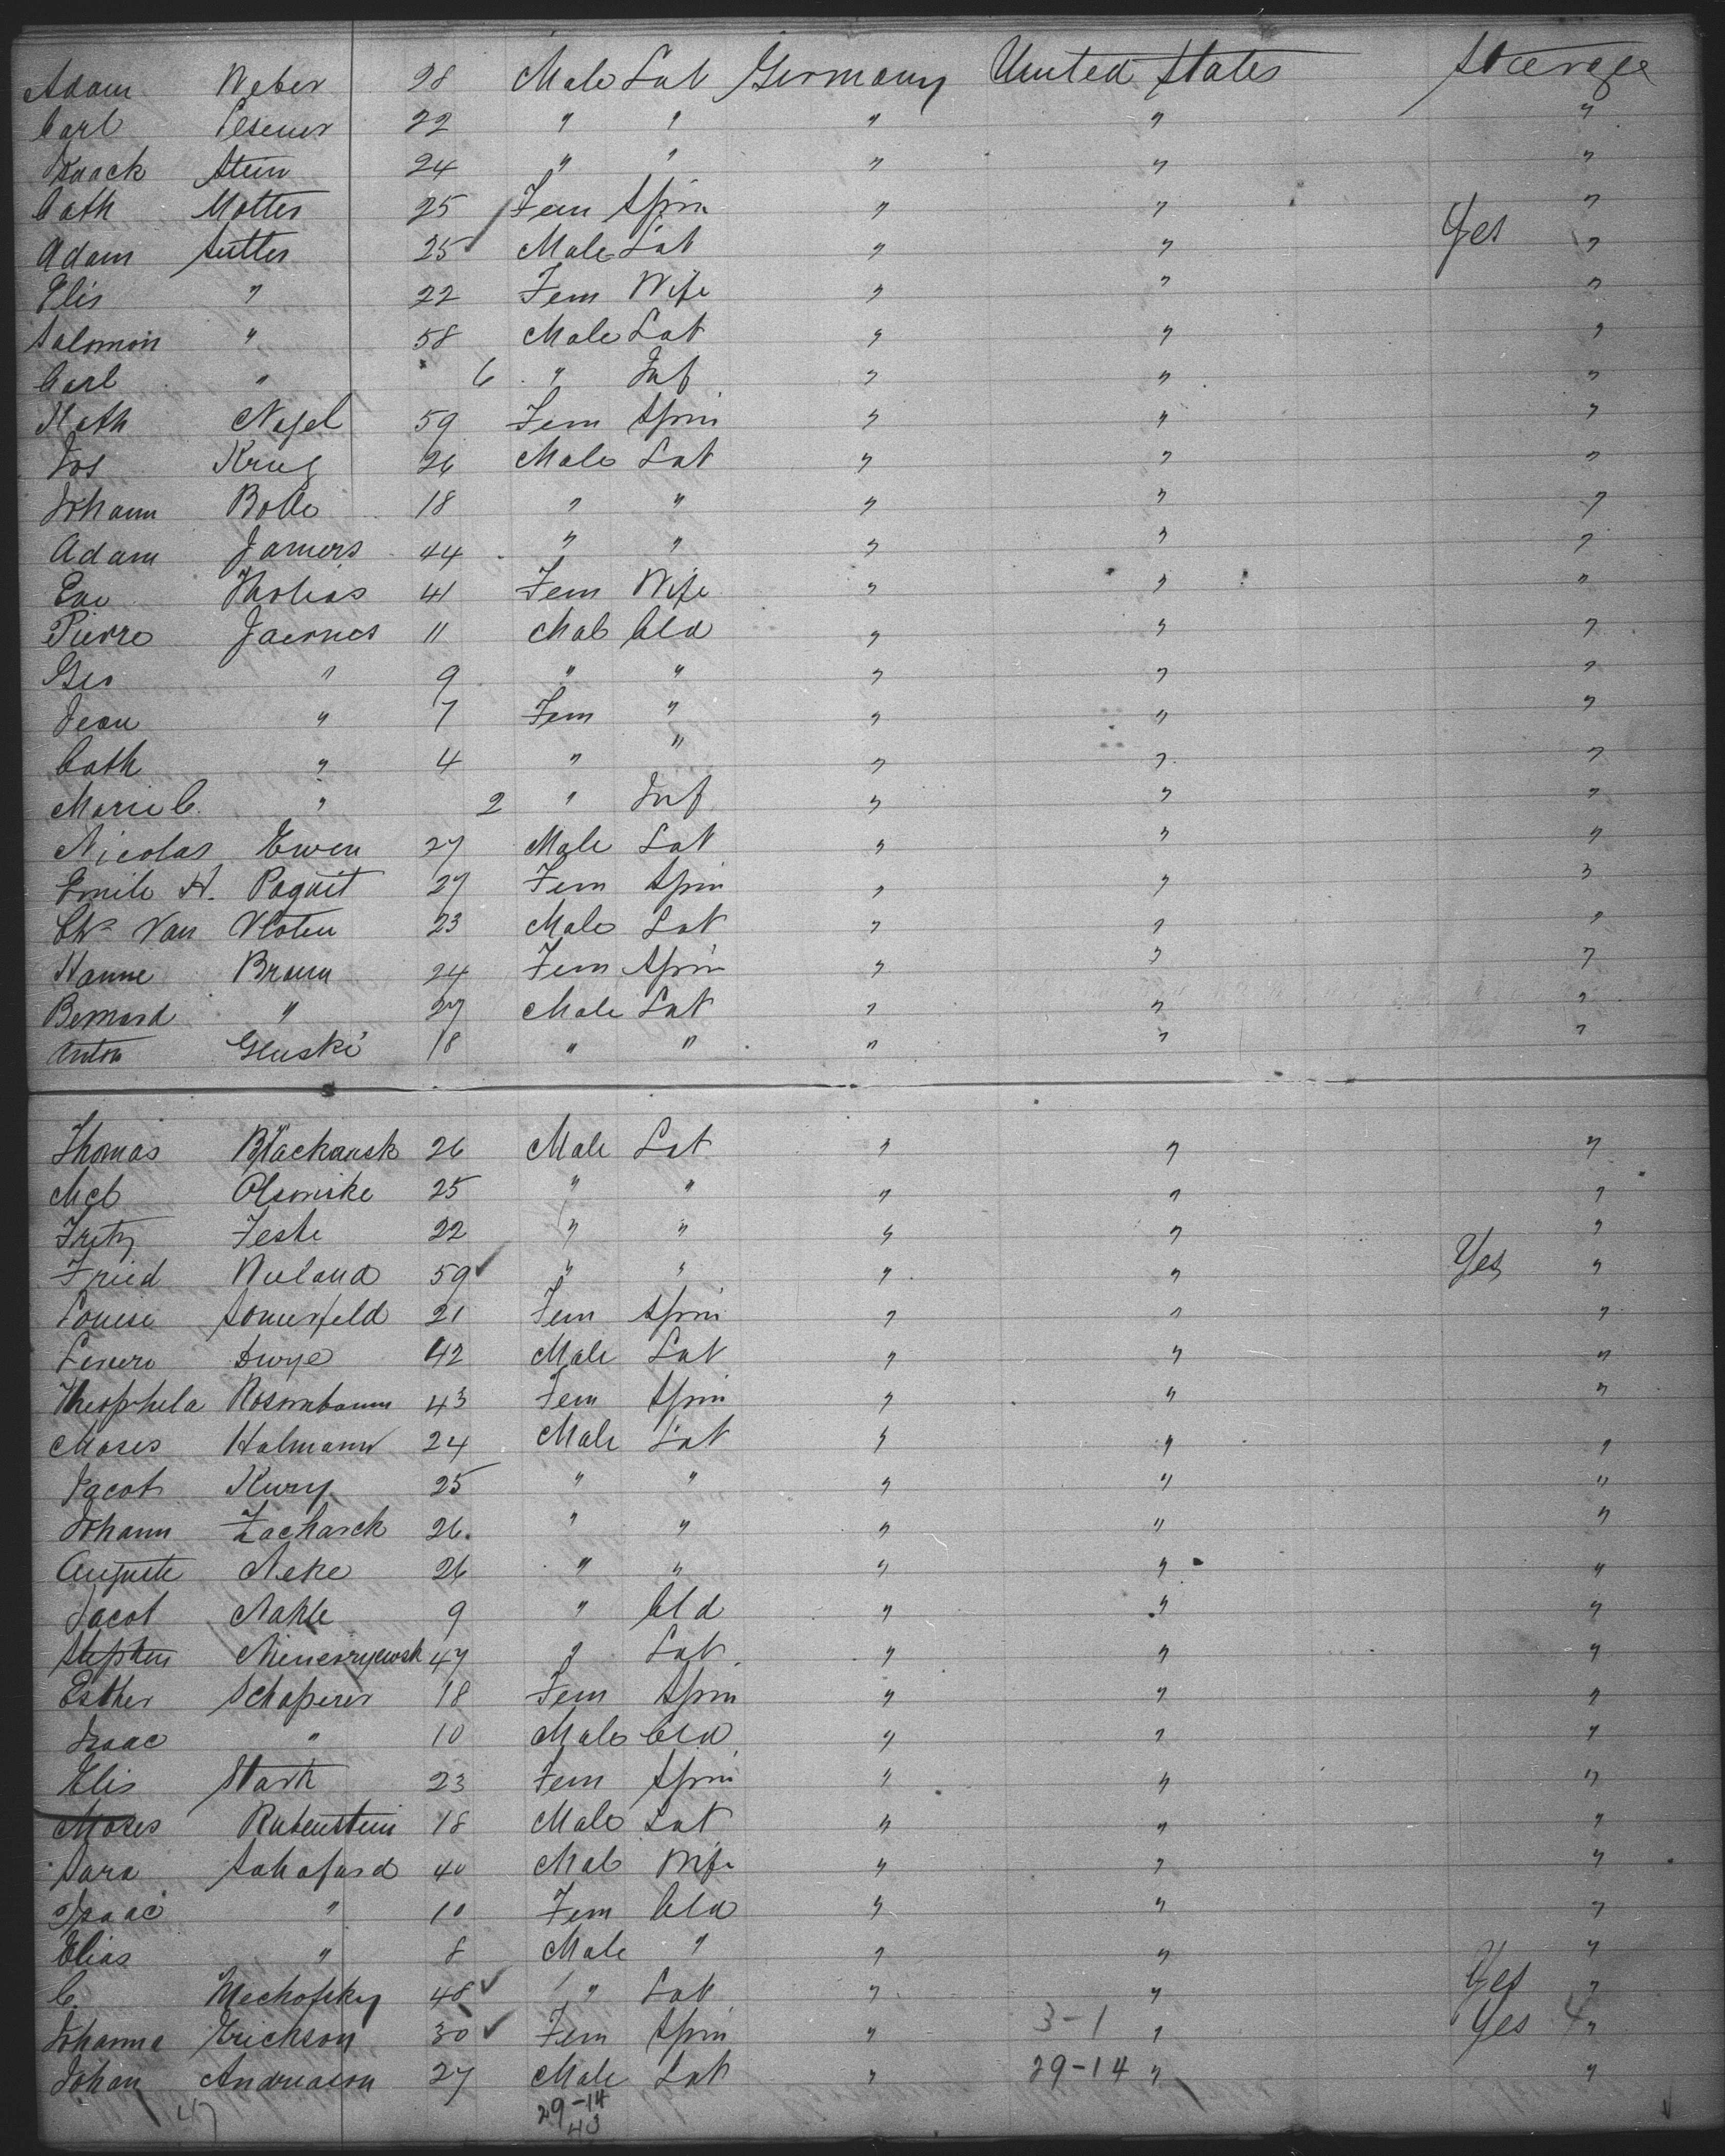 Adam Weber 28 Male Lab Germany United States Steerage
Carl 22 " " " " "
Isaack Stein 24 " " " " "
Cath Motter 25 Fem Spin " " "
Adam Sutter 25 Male Lab " " Yes "
Elis " 22 Fem Wife " " "
Salomon " 58 Male Lab " " "
Carl " 6 " Inf " " "
Kath Nagel 59 Fem Spin " " "
Jos Krug 26 Male Lab " " "
Johann Bolle 18 " " " " "
Adam Jamers 44 " " " " "
Eve Tholias 41 Fem Wife " " "
Pierre Jaernes 11 Male Cld " " "
Geo " 9 " " " " "
Jean " 7 Fem " " " "
Cath " 4 " " " " "
Marie C. " 2 " Inf " " "
Nicolas Ewen 27 Male Lab " " "
Emile H. Paquit 27 Fem Spin " " "
Chs Van Vloten 23 Male Lab " " "
Hanne Braun 24 Fem Spin " " "
Bernard " 27 Male Lab " " "
Anton Gluski 18 " " " " "
Thomas 26 Male Lab " " "
25 " " " " "
Fritz Feste 22 " " " " "
Fried Wieland 59 " " " " Yes "
Louise Somerfeld 21 Fem Spin " " "
Dwye 42 Male Lab " " "
Theophela Rosornbaum 43 Fem Spin " " "
Moses Halmann 24 Male Lab " " "
Jacob Kury 25 " " " " "
Johann Zacharck 26 " " " " "
Auguste Neke 26 " " " " "
Jacob Nahle 9 " Cld " " "
Stephen 47 " Lab " " "
Esther Schaperer 18 Fem Spin " " "
Isaac " 10 Male Cld " " "
Elis Stark 23 Fem Spin " " "
Moses Rubenstein 18 Male Lab " " "
Sara Sahafard 40 Male Wife " " "
Isaac " 10 Fem Cld " " "
Elias " 8 Male " " " "
C. Mechofsky 48 " Lab " " Yes "
Johanna Erickson 30 Fem Spin " 3-1 " Yes 4 "
Johan Andreason 27 Male Lab " 29-14 " "
47 29-14
43